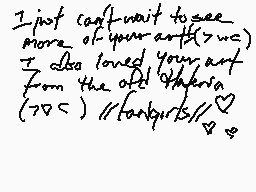 I just can't wait to see
more of your arts (>w<)
I also loved your art
from the old Hatena
(>∇<) //fangirls// ♡
♡ ♡